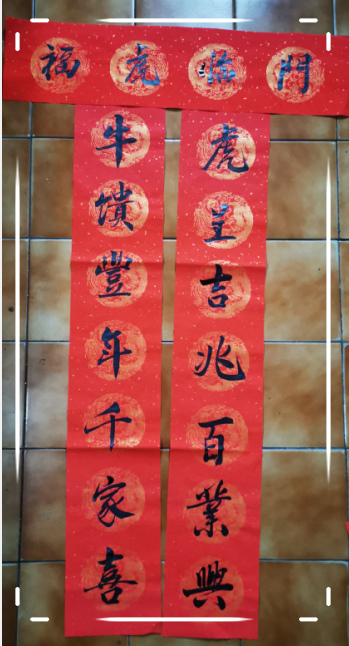 福虎臨門
牛饋豐年千家喜
虎呈吉兆百業興